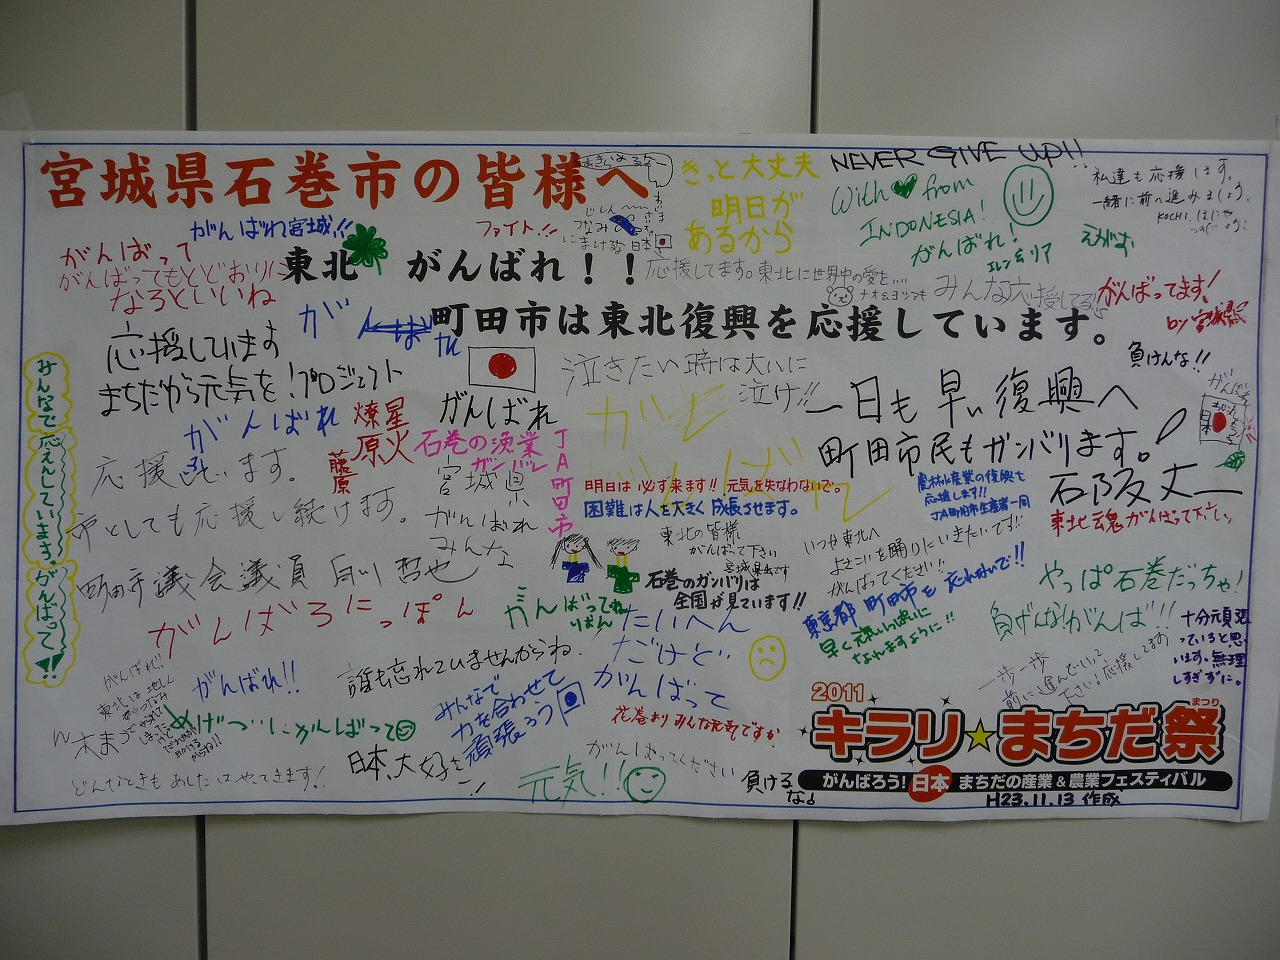 宮城県石巻市の皆様へ
きっと大丈夫
明日が
あるから
NEVER GIVE UP!!
With from
INDONESIA!
がんばれ!
私達も応援します。
一緒に前へ進みましょう。
えがお
がんばれ宮城!!
ファイト!!
東北 がんばれ!!
がんばって
がんばってもとどおりに
なるといいね
応援してます。東北に世界中の愛を
みんな応援してる
がんばってます!
町田市は東北復興を応援しています。
がんばれ
負けんな!!
応援しています
まちだから元気を!プロジェクト
泣きたい時は大いに
泣け!!
がんばれ
一日も早い復興へ
町田市民もガンバります。
石阪丈一
みんなで応えんしています。がんばって!!
がんばれ
燎原
星火
藤原
石巻の漁業
ガンバレ
JA町田市
宮城県
がんばれ
みんな
応援しています。
市としても応援し続けます。
町田市議会議員 白川哲也
明日は必ず来ます!!元気を失なわないで。
困難は人を大きく成長させます。
農林水産業の復興を
応援します!!
JA町田市生産者一同
東北魂がんばって下さい
東北の皆様
がんばって下さい
宮城県出です
石巻のガンバリは
全国が見ています!!
いつか東北へ
よさこいを踊りにいきたいです!!
がんばってください!!
東京都町田市を忘れないで!!
早く元気いっぱいに
なれますように!!
やっぱ石巻だっちゃ!
負げんながんば!!
十分元頑張
っていると思
います。無理
しすぎずに。
がんばろにっぽん
がんばってね
りぼん
たいへん
だけど
がんばって
一歩一歩
前に進んでいって
下さい!応援してます
がんばれ!!
がんばれ!!
誰も忘れていませんからね。
みんなで
力を合わせて
頑張ろう
花巻よりみんな元気ですか
日本、大好き
どんなときもあしたはやってきます!
元気!!
がんばってください
負けるな
2011
キラリ☆まちだ祭
まつり
がんばろう!日本 まちだの産業&農業フェスティバル
H23.11.13 作成